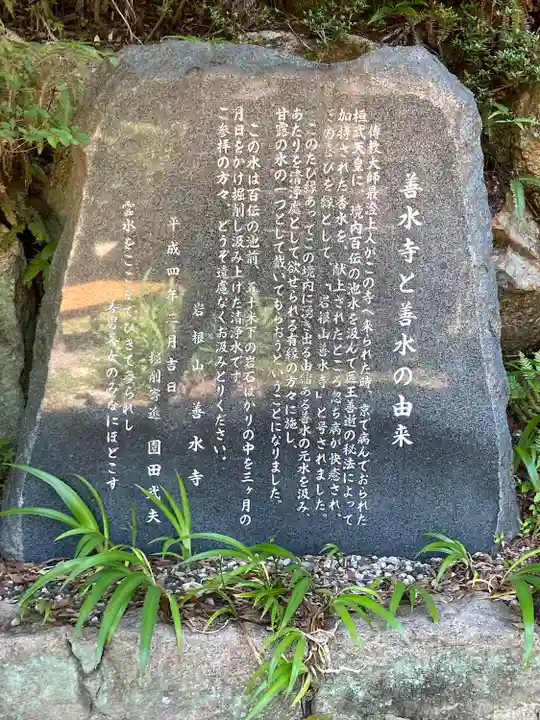 善水寺と善水の由来
傳教大師最澄上人がこの寺へ来られた時、京で病んでおられた
桓武天皇に、境内百伝の池水を汲んで医王善逝の秘法によって
加持された香水を、献上されたところ忽ち病が快癒され、
そのよろこびを縁として、「岩根山善水寺」と号されました。
このたび縁あってこの境内に湧き出る由緒ある善水の元水を汲み、
あたりを清浄處として欲せられる有縁の方々に施し、
甘露の水の一つとして戴いてもらおうということになりました。
この水は百伝の池前、五十米下の岩石ばかりの中を三ヶ月の
月日をかけ掘削し汲み上げた清浄水です。
ご参拝の方々、どうぞ遠慮なくお汲みとりください。
岩根山 善水寺
平成四年三月吉日
掘削寄進 園田武夫
霊水をここ
善男善女のみなにほどこす